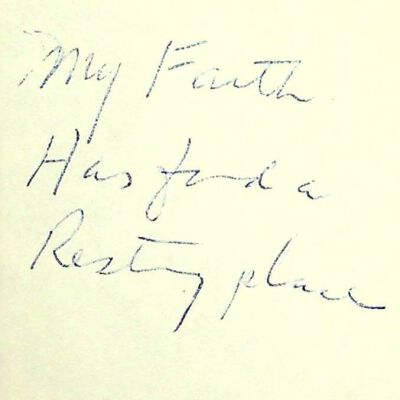 My Faith
Has found a
Resting place